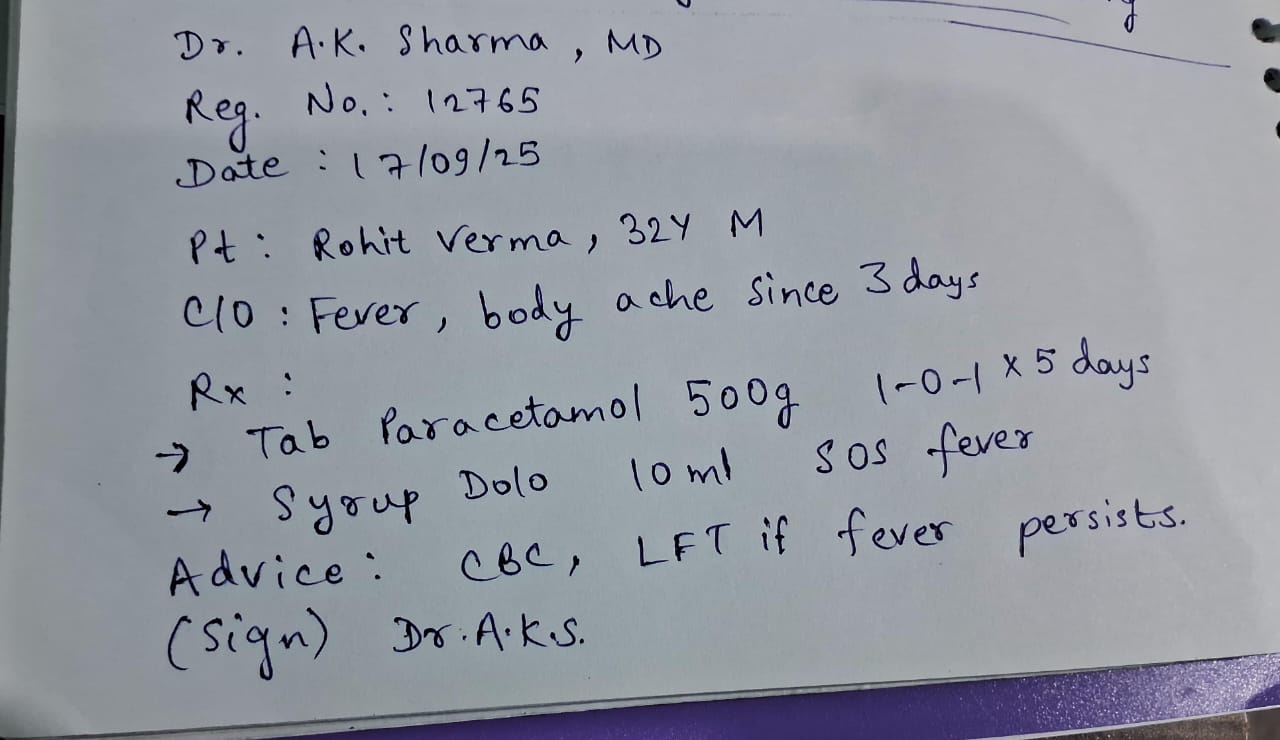 Dr. A.K. Sharma, MD
Reg. No.: 12765
Date : 17/09/25
Pt : Rohit Verma, 32Y M
C/O : Fever, body ache since 3 days
Rx :
→ Tab Paracetamol 500g 1-0-1 x 5 days
→ Syrup Dolo 10 ml SOS fever
Advice : CBC, LFT if fever persists.
(Sign) Dr. A.K.S.